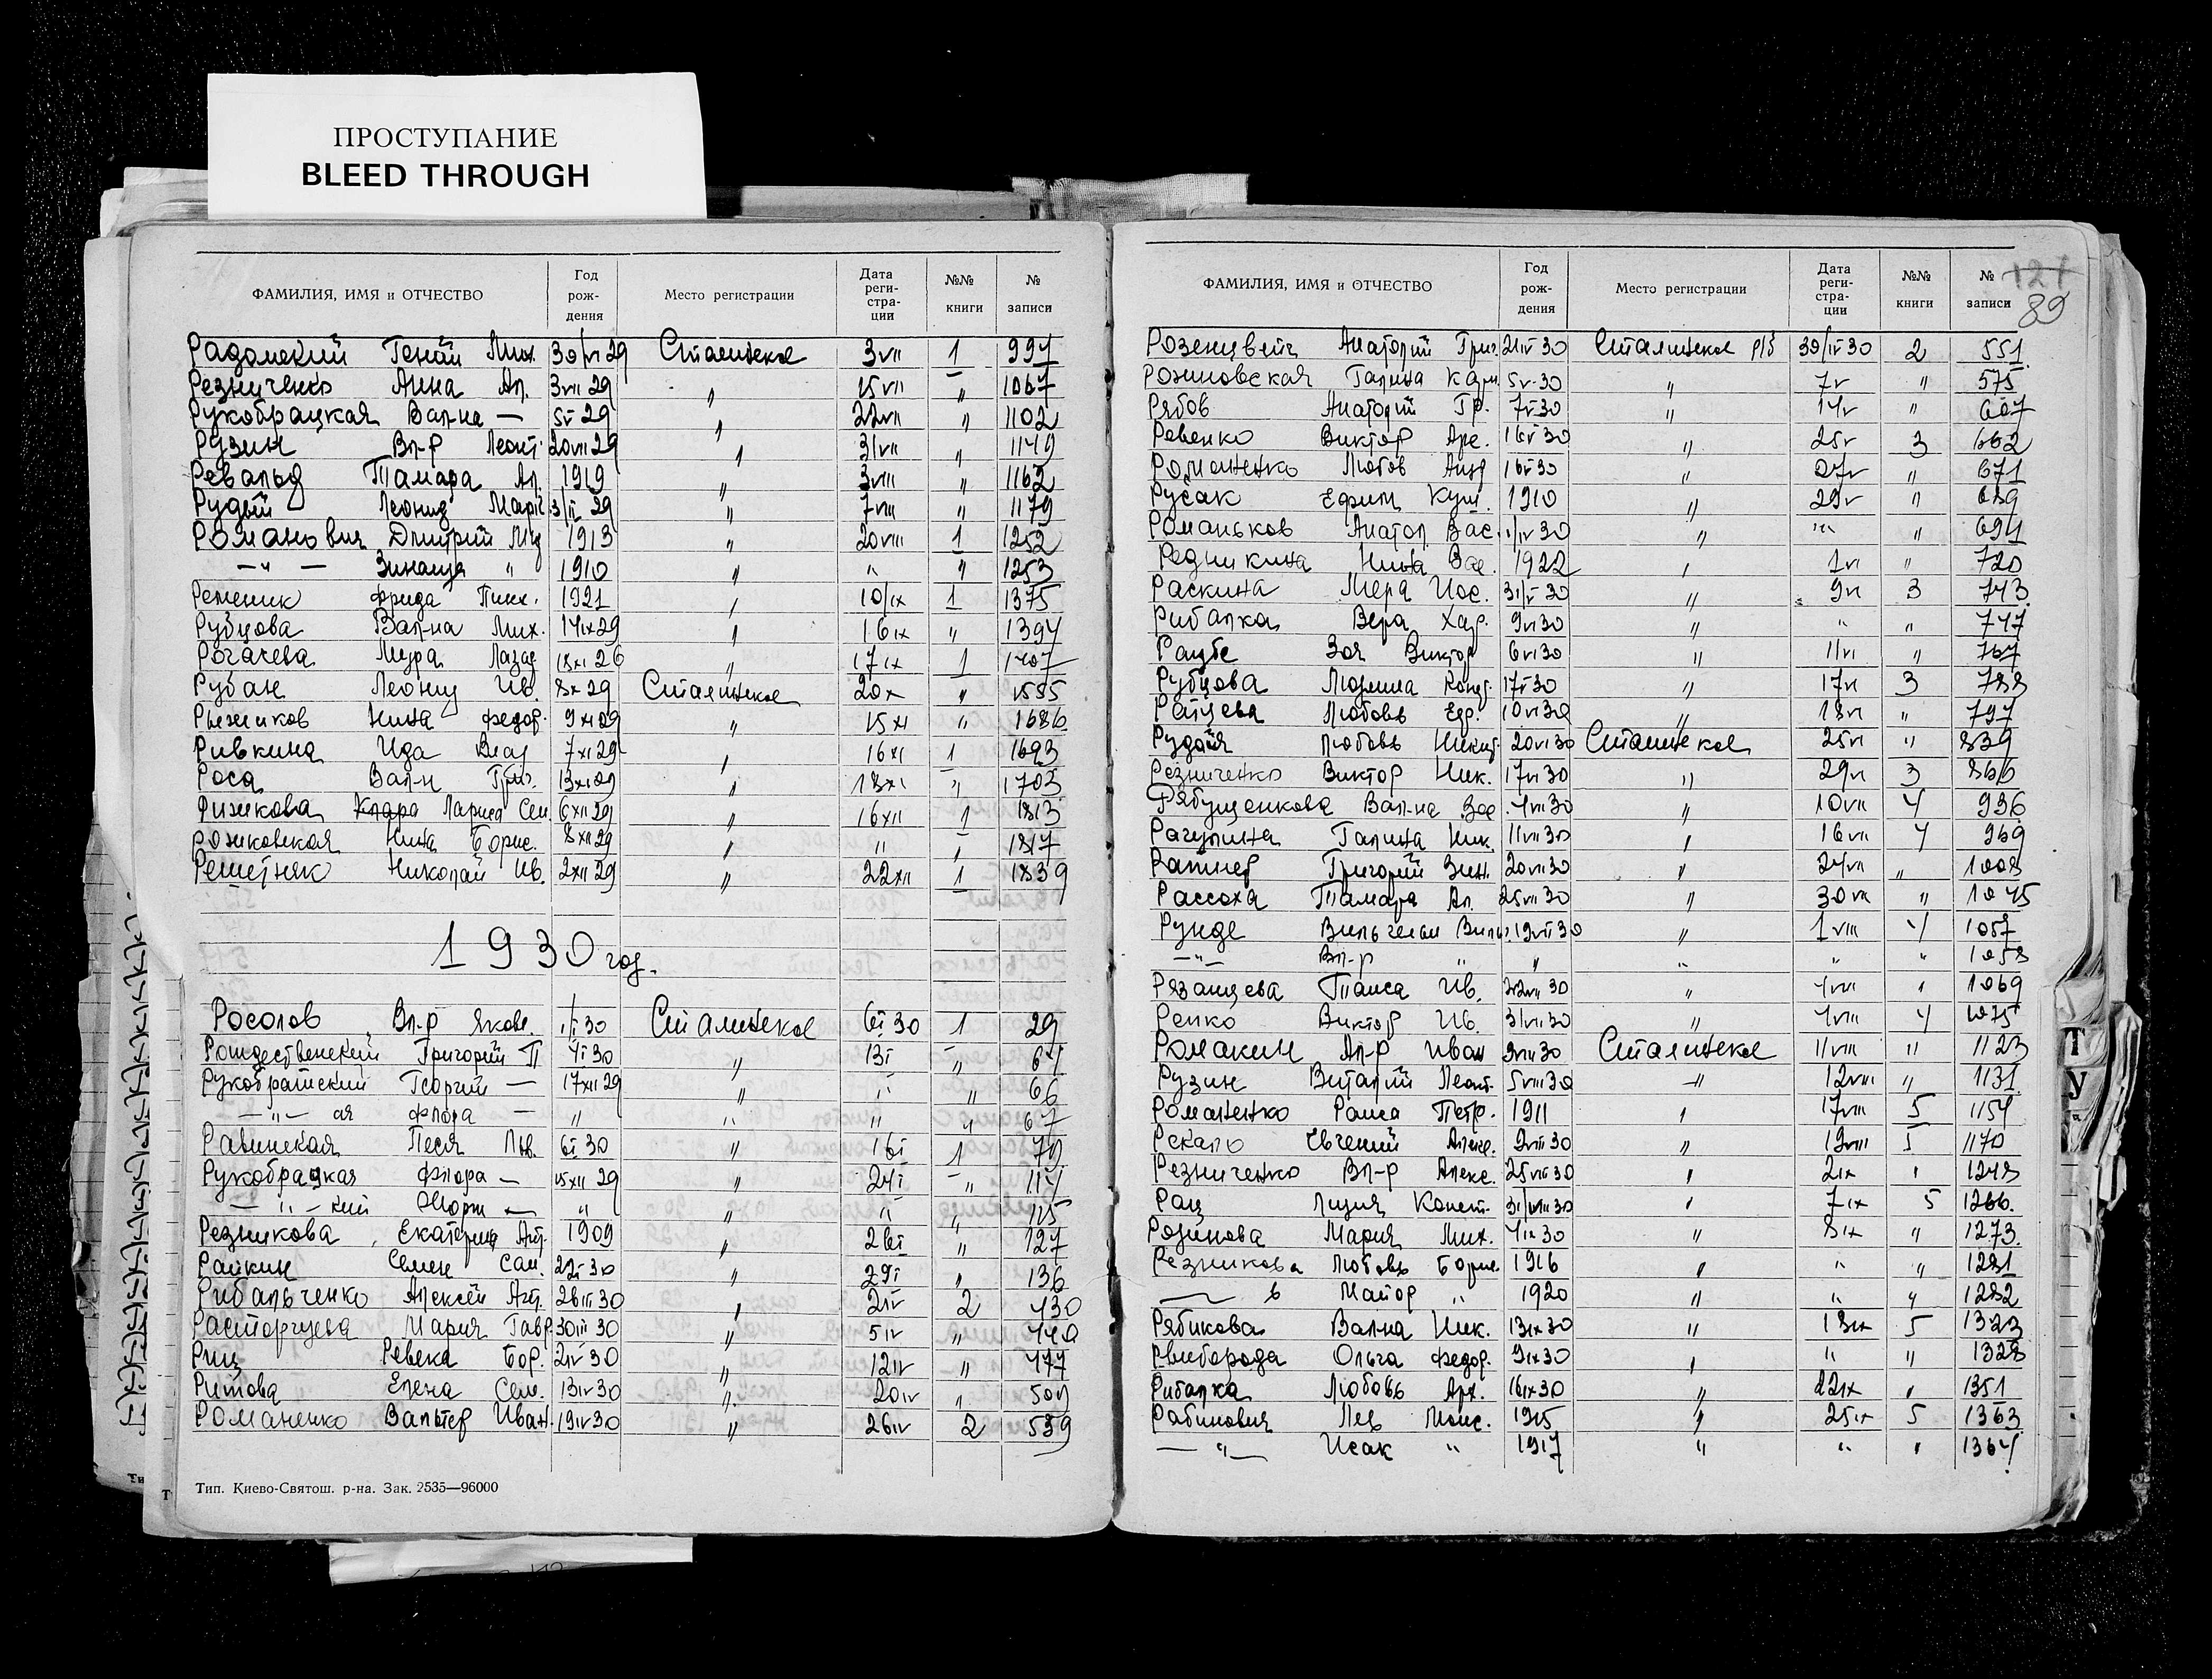 ПРОСТУПАНИЕ
BLEED THROUGH
ФАМИЛИЯ, ИМЯ и ОТЧЕСТВО Год рождения Место регистрации Дата регистрации №№ книги № записи
Радомский Мих. 30/VI 29 Сталинское 3VII 1 994
Резниченко Анна Ал. 3VII 29 " 15VII " 1067
Рукобрацкая Вал-на — 5V 29 " 22VII " 1102
Рузин Вл-р Леонт. 20VII 29 " 31VII " 1149
Ревальд Тамара Ал. 1919 " 3VIII " 1162
Рудый Леонид " 7VIII " 1179
Романович Дмитрий 1913 " 20VIII 1 1252
— " — Зинаида " 1910 " " " 1253
Ременик Фрида Пинх. 1921 " 10/IX 1 1375
Рубцова Вал-на Мих. 14IX29 " 16IX " 1394
Рогачева Лазар 18XI 26 " 17IX 1 1407
Рубан Леонид Ив. 8X 29 Сталинское 20X " 1555
Рыжиков Нина Федор. 9XI29 " 15XI " 1686
Ривкина Ида Влад 7XI29 " 16XI 1 1693
Роса Вал-н Григ. 13XI29 " 18XI " 1703
Рижикова Клара Лариса Сем. 6XII29 " 16XII 1 1813
Рожковская Нина Борис. 8XII29 " " " 1817
Решетняк Николай Ив. 2XII29 " 22XII 1 1839
1930 год.
Росолов Вл-р Якове. 1/I 30 Сталинское 6I 30 1 29
Рождественский Григорий П 4I 30 " 13I " 64
Рукобратский Георгий — 17XII29 " " " 66
— " — ая Флора — " " " " 67
Равинская Песя Льв. 6I 30 " 16I 1 79
Рукобрацкая Флора — 15XII 29 " 24I " 114
— " — кий — " " " " 115
Резникова Екатерина Ант. 1909 " 26I " 127
Райкин Семен Сам. 22I 30 " 29I " 136
Рибальченко Алексей Ант. 26III 30 " 2IV 2 430
Расторгуева Мария Гавр. 30III 30 " 5IV " 440
Риц Ревека Бор. 2IV 30 " 12IV " 477
Ритова Елена Сем. 13IV 30 " 20IV " 509
Романенко Вальтер Иван. 19IV30 " 26IV 2 539
Тип. Киево-Святош. р-на. Зак. 2535—96000
121
89
ФАМИЛИЯ, ИМЯ и ОТЧЕСТВО Год рождения Место регистрации Дата регистрации №№ книги № записи
Розенцвейг Анатолий Григ. 21IV 30 Сталинское р/б 30/IV 30 2 551
Рожновская Галина 5V-30 " 7V " 575
Рябов Анатолий Гр. 7V30 " 14V " 607
Ревенко Виктор Арс. 16V30 " 25V 3 662
Романенко Любов Анд 16V30 " 27V " 671
Русак Ефим Кум. 1910 " 29V " 689
Романьков Анатол. Вас. 1/IV 30 " " " 691
Редникина Нина Вас. 1922 " 1VI " 720
Раскина Мера Иос. 31/V 30 " 9VI 3 743
Рибалка Вера Хар. 9VI30 " " " 747
Раубе Зоя Виктор 6VI30 " 11VI " 767
Рубцова Людмила Конд. 17V30 " 17VI 3 788
Рапцева Любовь Едр. 10VI30 " 18VI " 797
Рудая Любовь Никит. 20VI30 Сталинское 25VI " 839
Резниченко Виктор Ник. 17VI30 " 29VI 3 866
Рябущенкова Вал-на Вас. 4VII30 " 10VII 4 936
Рагулина Галина Ник. 11VII30 " 16VII 4 969
Ратнер Григорий Зин. 20VII30 " 24VII " 1008
Рассоха Тамара Ал. 25VII 30 " 30VII " 1045
Рунде Вильгельм Вильг. 19VII30 " 1VIII 4 1057
— " — Вл-р " " " " " 1058
Рязанцева Таиса Ив. 22VII 30 " 4VIII " 1069
Репко Виктор Ив. 31/VII 30 " 4VIII 4 1075
Ромакин Ал-р Иван 9VIII30 Сталинское 11VIII " 1123
Рузин Виталий Леонт. 5VIII30 " 12VIII " 1131
Романенко Раиса Петр. 1911 " 17VIII 5 1154
Рекало Евгений Алекс. 9VIII30 " 19VIII 5 1170
Резниченко Вл-р Алекс. 25VIII30 " 2IX " 1248
Рац Лидия Конст. 31/VIII30 " 7IX 5 1266.
Розинова Мария Мих. 4IX 30 " 8IX " 1273.
Резникова Любовь Борис 1916 " " " 1281
— в Майор " 1920 " " " 1282
Рябикова Вал-на Ник. 13IX30 " 18IX 5 1323
Рвиборода Ольга Федор. 9IX30 " " " 1328
Рибалка Любовь Арх. 16IX30 " 22IX " 1351
Рабинович Лев Моис. 1915 " 25IX 5 1363
— " — Исак " 1917 " " " 1364